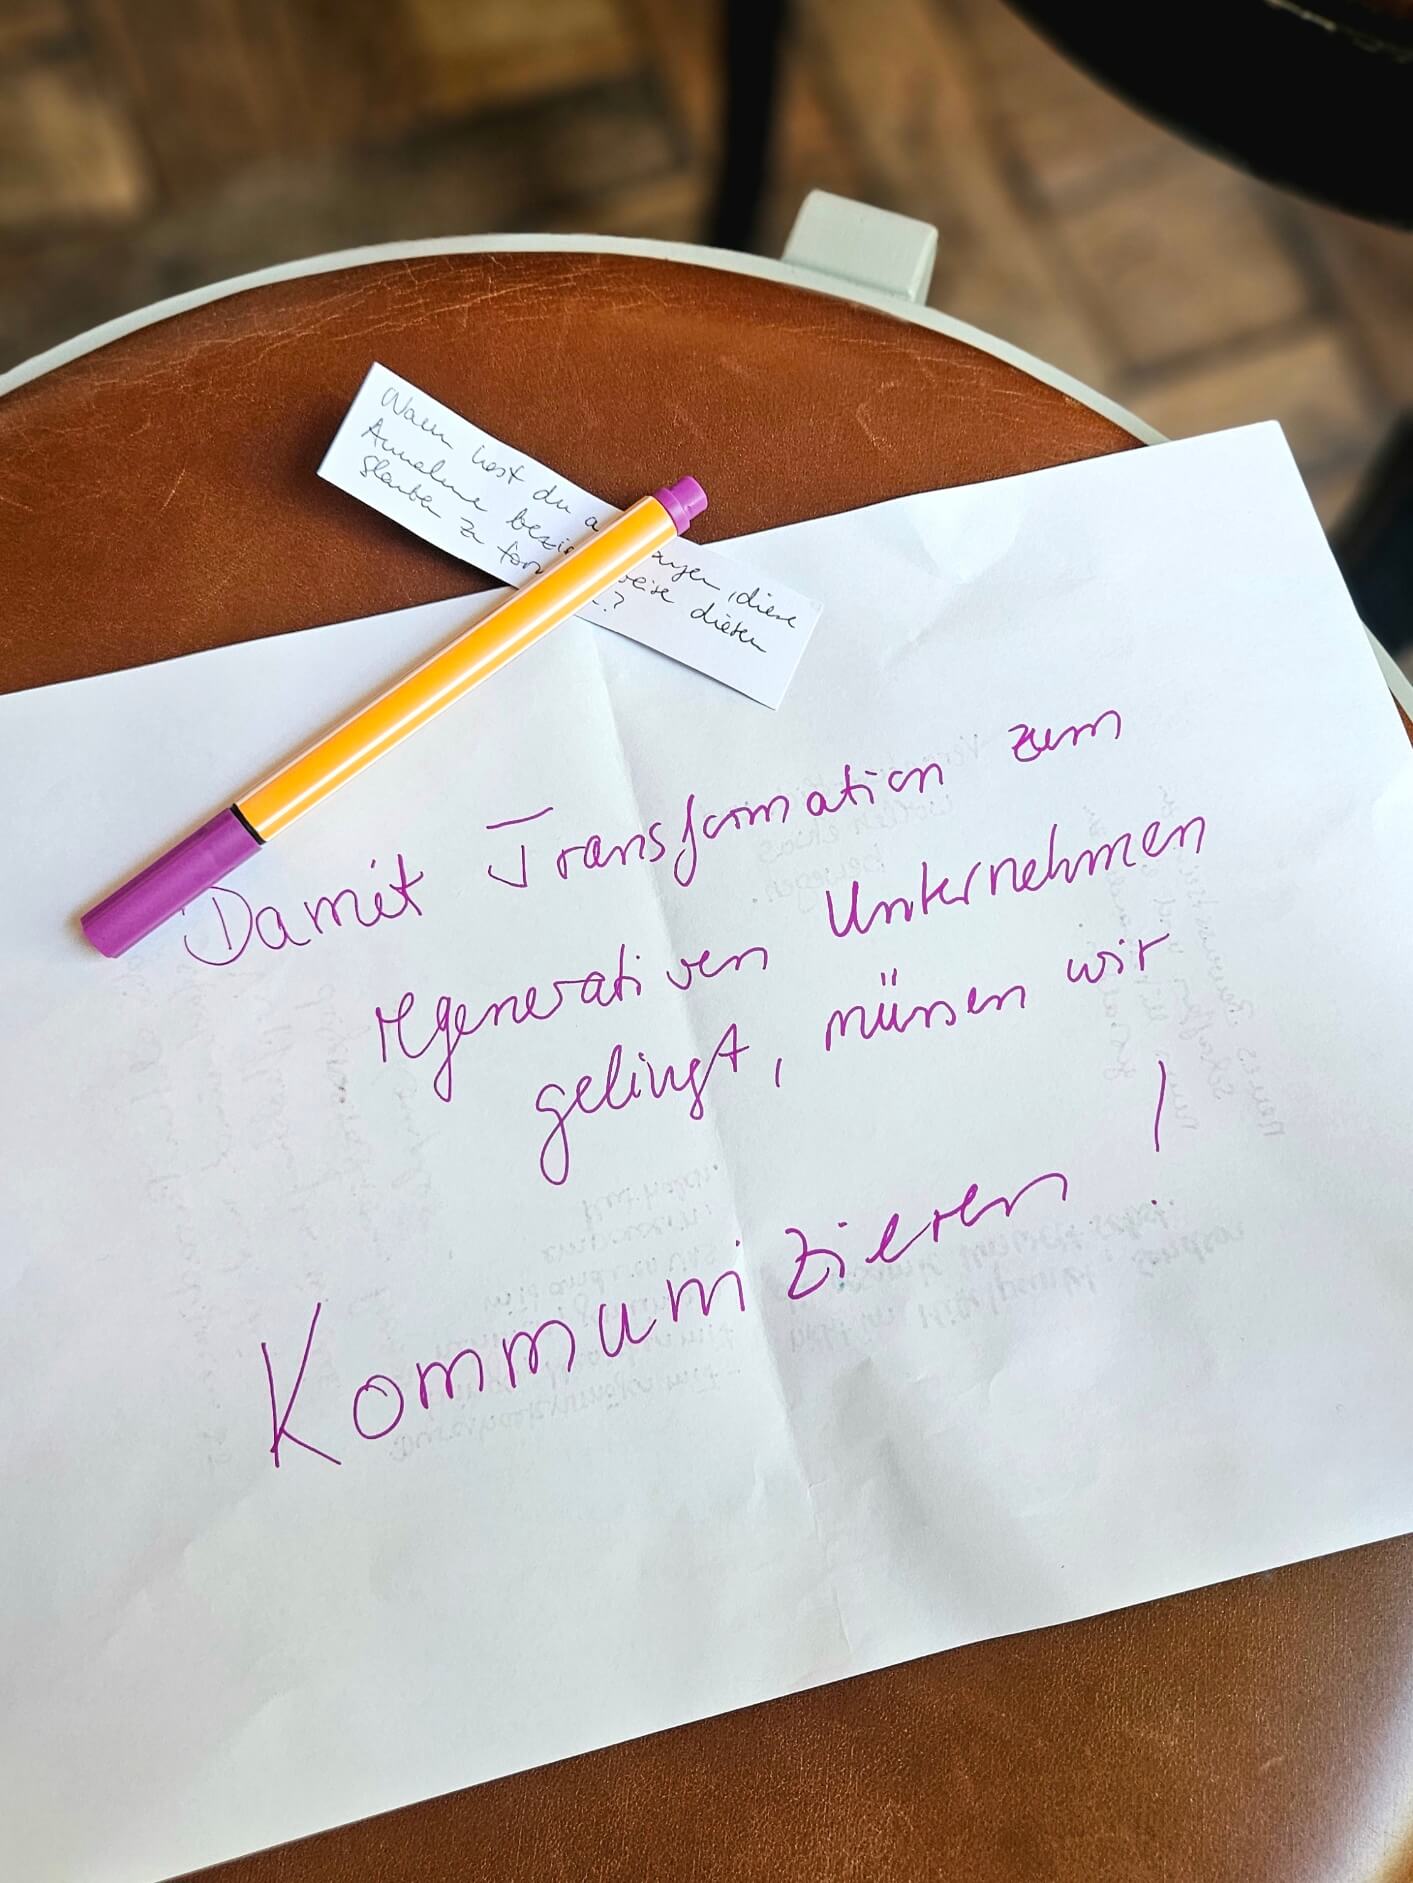 Wann hast du a angen, diese
Annahme bezie weise diesen
Glauben zu for n?
Damit Transformation zum
regenerativen Unternehmen
gelingt, müssen wir
Kommunizieren!